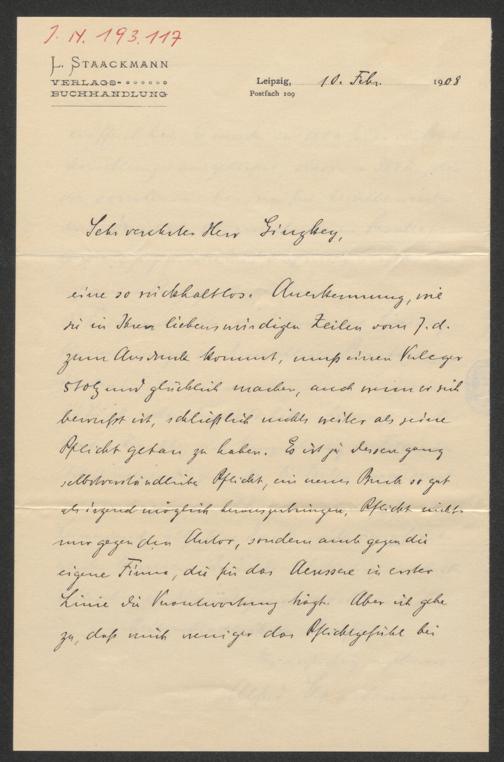 J. N. 193.117
L. STAACKMANN
VERLAGS-
BUCHHANDLUNG
Leipzig, 10. Febr. 1908
Postfach 109
Sehr verehrter Herr Ginzkey,
eine so rückhaltlose Anerkennung, wie
sie in Ihren liebenswürdigen Zeilen vom 7. d.
zum Ausdruck kommt, muß einen Verleger
stolz und glücklich machen, auch wenn er sich
bewußt ist, schließlich nichts weiter als seine
Pflicht getan zu haben. Es ist ja dessen ganz
selbstverständliche Pflicht, ein neues Buch so gut
als irgend möglich herauszubringen, Pflicht nicht
nur gegen den Autor, sondern auch gegen die
eigene Firma, die für das Aeussere in erster
Linie die Verantwortung trägt. Aber ich gebe
zu, daß mich weniger das Pflichtgefühl bei